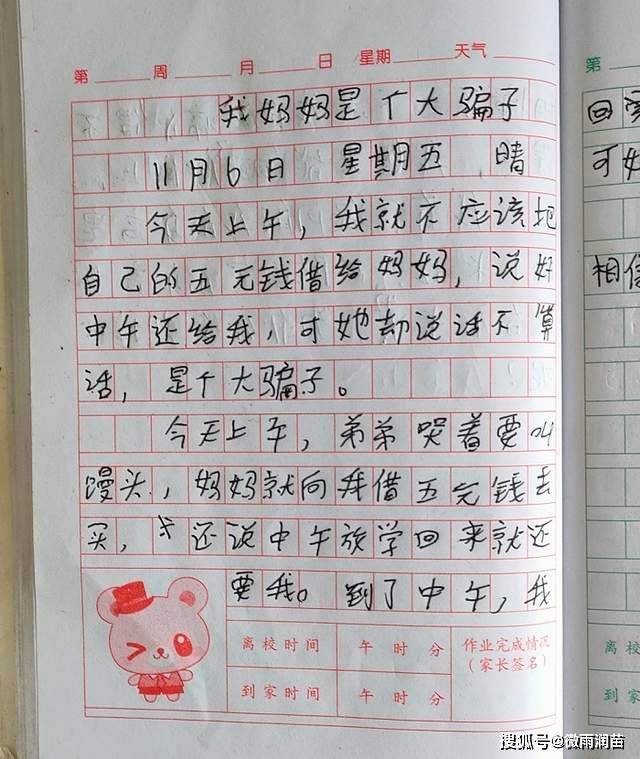 第 周 月 日 星期 天气
我妈妈是个大骗子
11月6日 星期五 晴
今天上午，我就不应该把
自己的五元钱借给妈妈，说好
中午还给我，可她却说话不算
话，是个大骗子。
今天上午，弟弟哭着要叫
馒头，妈妈就向我借五元钱去
买，还说中午放学回来就还
要我。到了中午，我
离校时间 午 时 分 作业完成情况
（家长签名）
到家时间 午 时 分
第
回家
可
相信
离校
到家
搜狐号@微雨润苗